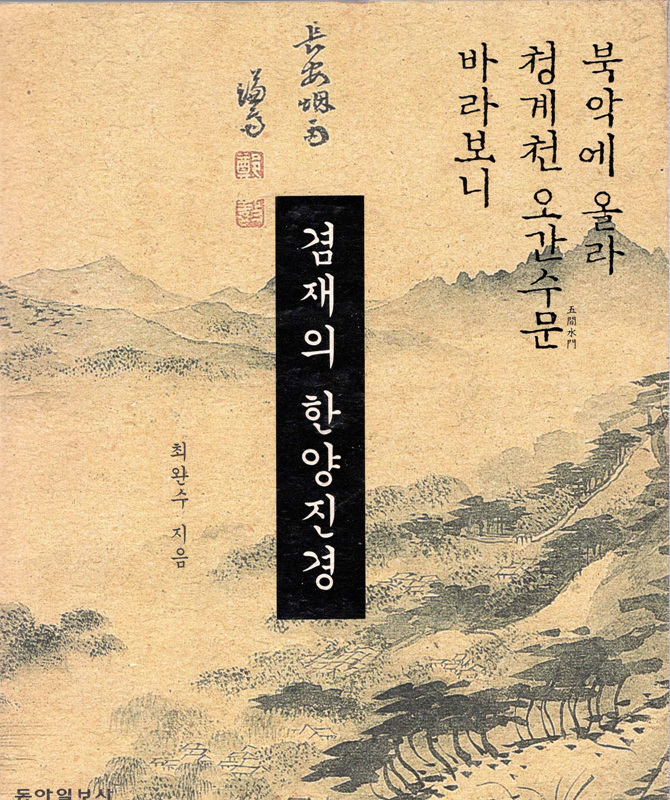 북악에 올라
청계천 오간수문
五間水門
바라보니
長安烟雨
謙齋
鄭
敾
겸재의 한양진경
최완수 지음
동아일보사